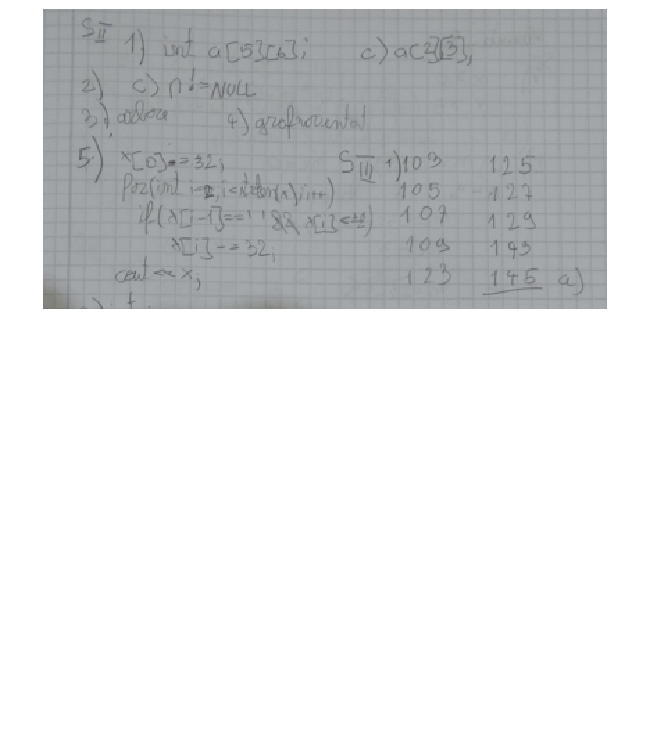 SII 1) int a[5][6]; c) a[2][3];
2) c) p!=NULL
3) arbore 4) graf orientat
5) x[0]-=32;
for(int i=1; i<strlen(x); i++)
if(x[i-1]==' ' && x[i]
x[i]-=32;
cout<<x;
SIII 1) 103 125
105 127
107 129
109 143
123 145 a)